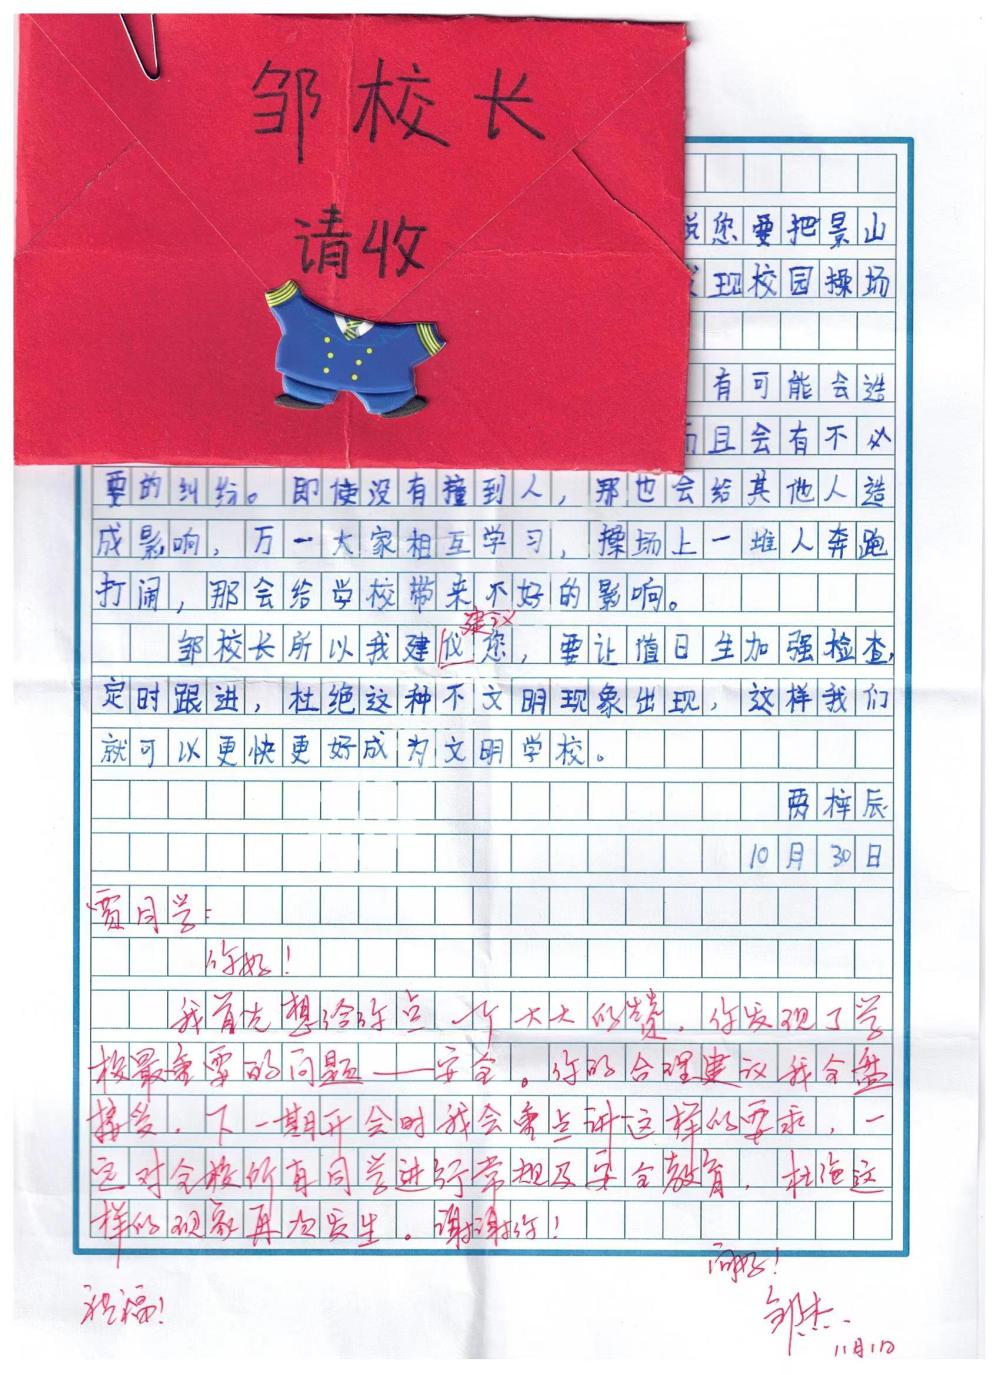 邹校长
请收
您要把景山
现校园操场
有可能会造
而且会有不必
要的纠纷。即使没有撞到人，那也会给其他人造
成影响，万一大家相互学习，操场上一堆人奔跑
打闹，那会给学校带来不好的影响。
建议
邹校长所以我建仪您，要让值日生加强检查，
定时跟进，杜绝这种不文明现象出现，这样我们
就可以更快更好成为文明学校。
贾梓辰
10月30日
贾同学：
你好！
我首先想给你点一个大大的赞，你发现了学
校最重要的问题——安全。你的合理建议我全盘
接受，下一期开会时我会重点讲这样的要求，一
定对全校所有同学进行常规及安全教育，杜绝这
样的现象再次发生。谢谢你！
向好！
祝福！
邹杰
11月1日